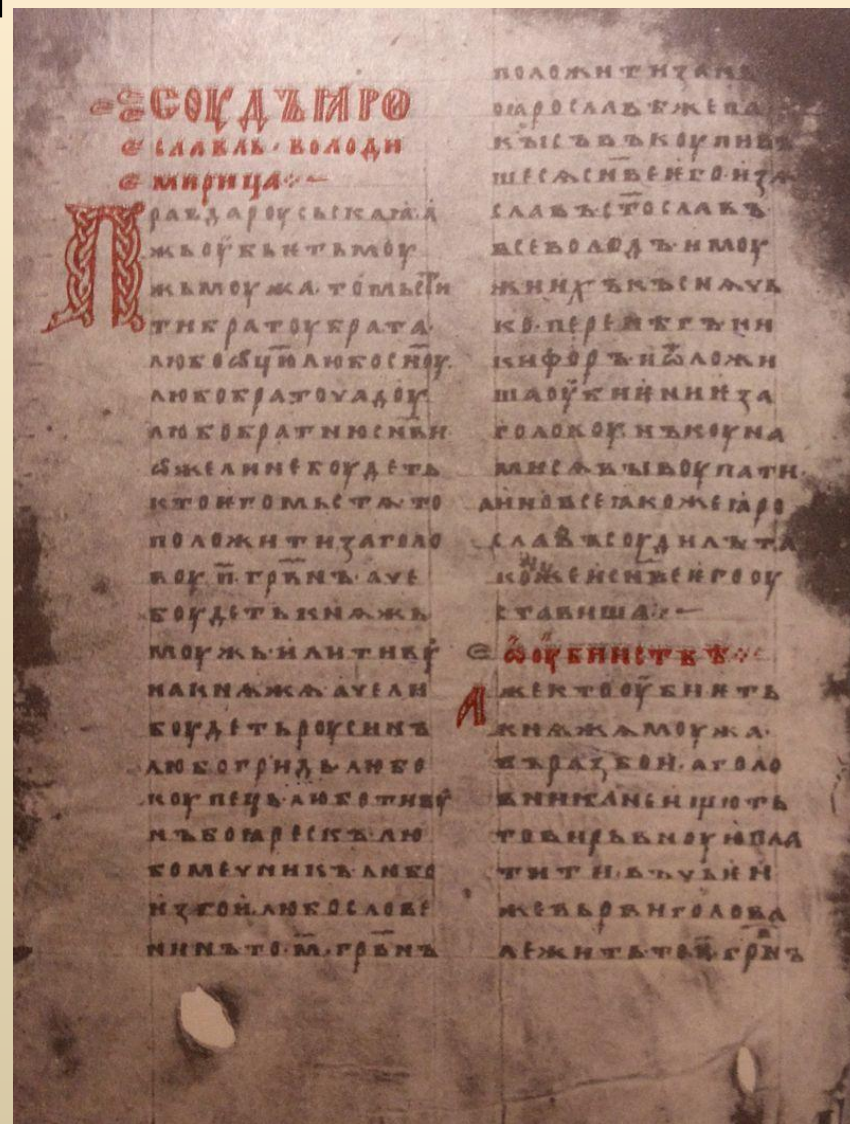 СОУДЪ ꙖРО
СЛАВЛЬ · ВОЛОДИ
МИРИЦА
Правда роусьскаꙗ · а
жь оубьѥть моу
жь моужа · то мьсти
ти братоу брата ·
любо ѡц҃ю любо сн҃оу ·
любо братоучадоу
любо братню сн҃ви
ѡже ли не боудеть
кто ѥго мьстѧ то
положити за голо
воу · п҃ · грв҃нъ · аче
боудеть кнѧжь
моужь · или тиву
на кнѧжѧ аче ли
боудеть роусинъ
любо гридь любо
коупець · любо тиву
нъ боꙗрескъ · лю
бо мечникъ · любо
изгои · любо слове
нинъ то · м҃ · грв҃нъ
положити за нь
по ꙗрославѣ же па
кы съвъкоупивъ
шесѧ сн҃ве ѥго · изѧ
славъ · ст҃ославъ ·
всеволодъ · и моу
жи ихъ къснѧчь
ко · перенѣгъ · ни
кифоръ · и ѿложи
ша оубиѥниѥ за
голову · нъ коуна
ми сѧ выкоупати ·
а ино все ꙗкоже ꙗро
славъ соудилъ та
коже и сн҃ве ѥго оу
ставиша ·
ѡ оубииствѣ
Аже кто оубиѥть
кнѧжѧ моужа ·
въ разбои · а голо
вникa не ищють
то вирьвноую пла
тити · въ чьѥи
же вьрви голова
лежить · то · п҃ · грв҃нъ